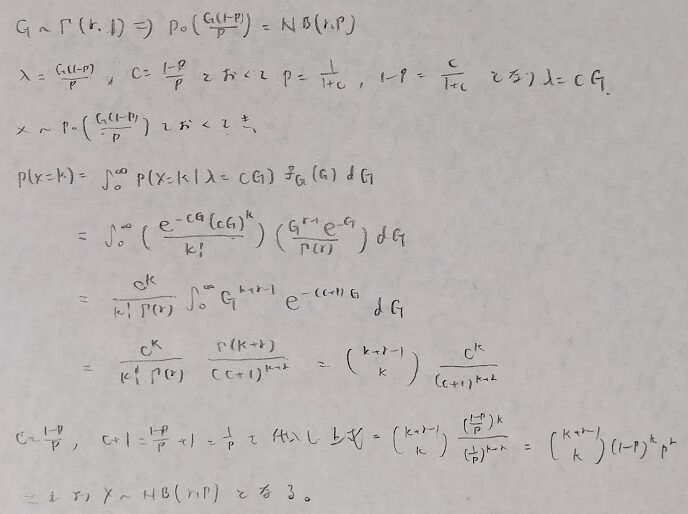 G ~ Γ(r, 1) ⇒ Po(G(1-p)/p) = NB(r,p)
λ = G(1-p)/p , C = 1-p/p とおくと p = 1/1+c , 1-p = c/1+c となり λ = cG.
x ~ Po(G(1-p)/p) とおくとき、
p(x=k) = ∫₀^∞ p(x=k | λ=cG) f_G(G) dG
= ∫₀^∞ (e^{-cG}(cG)^k / k!) (G^{r-1} e^{-G} / Γ(r)) dG
= c^k / k! Γ(r) ∫₀^∞ G^{k+r-1} e^{-(c+1)G} dG
= c^k / k! Γ(r) Γ(k+r) / (c+1)^{k+r} = (k+r-1 k) c^k / (c+1)^{k+r}
C = 1-p/p , c+1 = 1-p/p + 1 = 1/p と代入し 上式 = (k+r-1 k) (1-p/p)^k / (1/p)^{k+r} = (k+r-1 k) (1-p)^k p^r
より X ~ NB(r,p) となる。